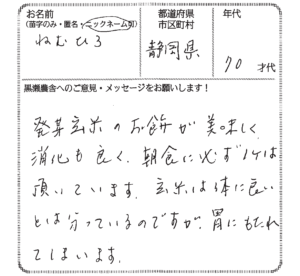 お名前
(苗字のみ・匿名・ニックネーム可)
ねむひろ
都道府県
市区町村
静岡県
年代
70 才代
黒瀬農舎へのご意見・メッセージをお願いします!
発芽玄米のお餅が美味しく
消化も良く、朝食に必ず1ケは
頂いています。玄米は体に良い
とは分っているのですが、胃にもたれ
てしまいます。